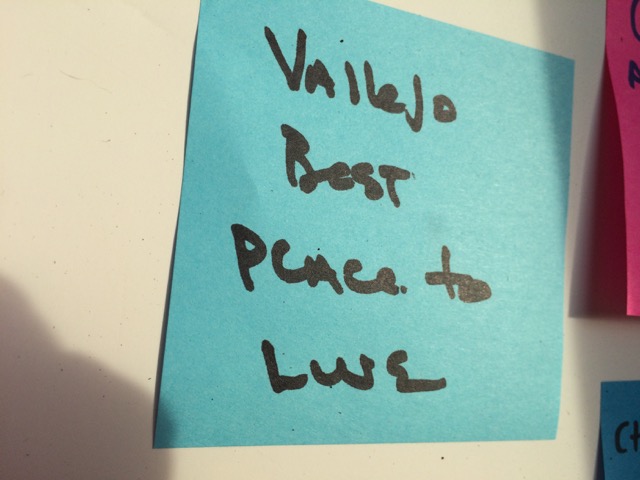 Vallejo
Best
Place to
Live
CH